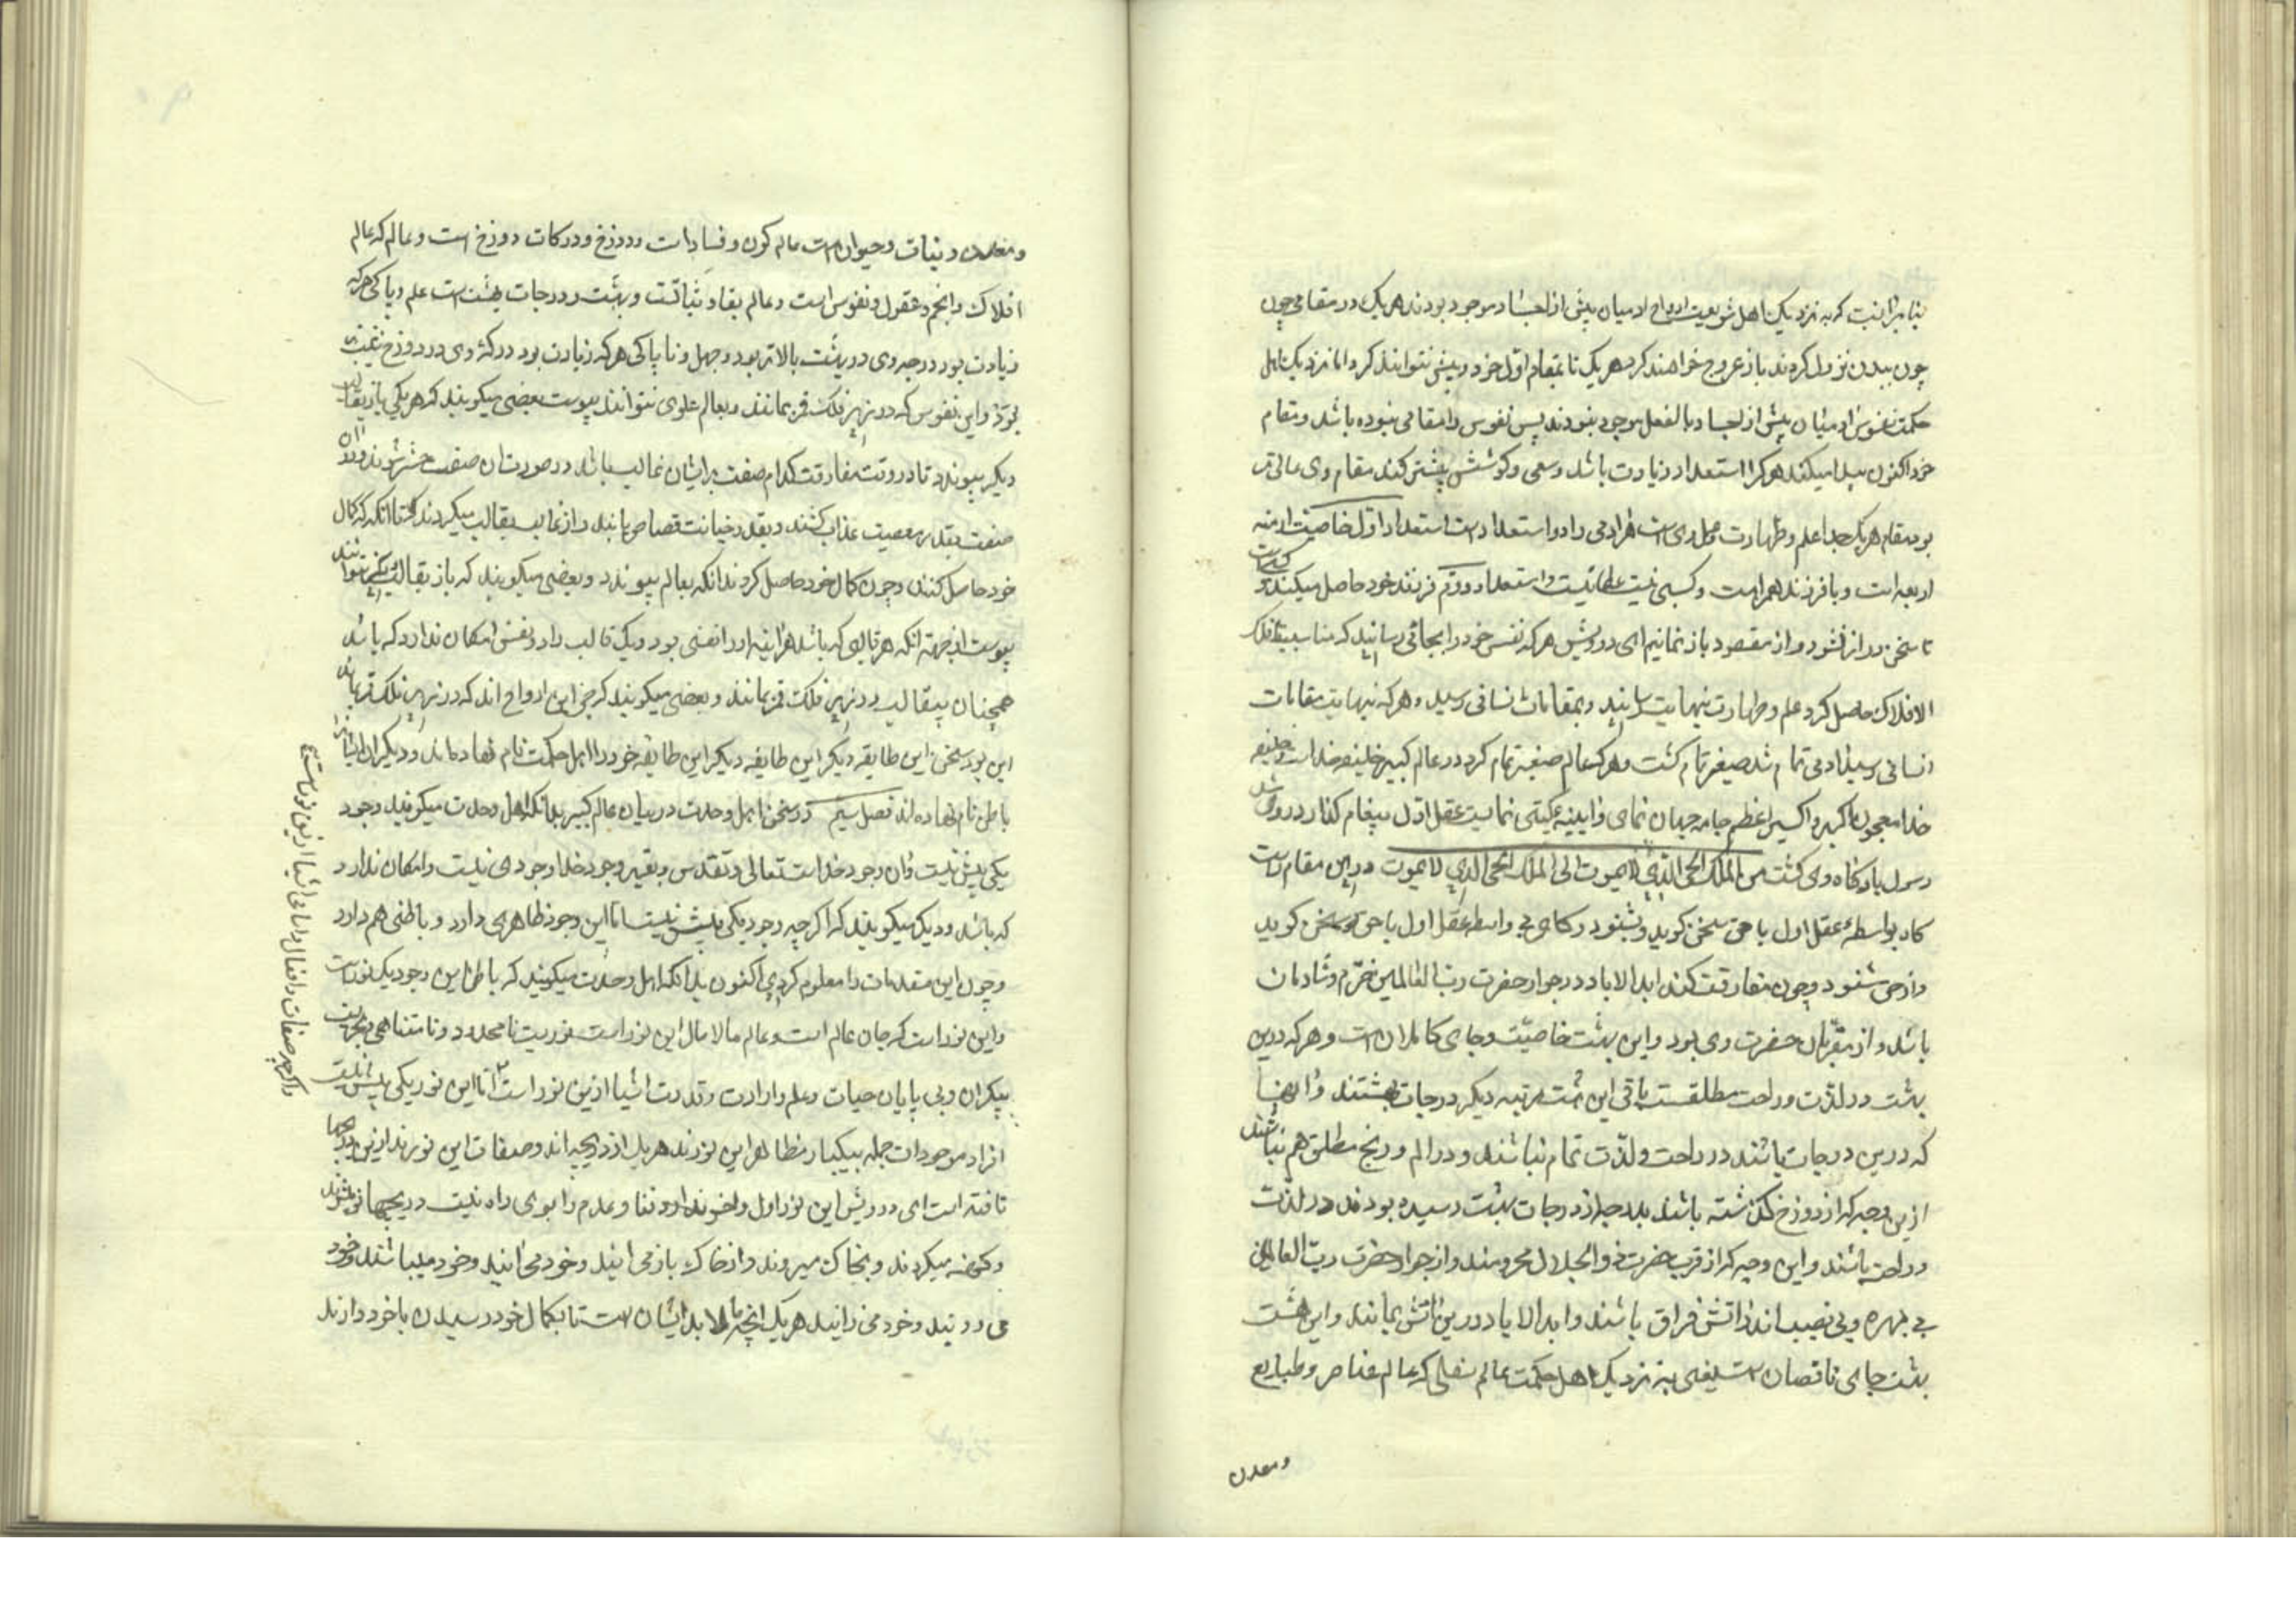 بنابر آنست که به نزدیک اهل شریعت ارواح ادمیان پیش از اجساد موجود بودند هریک در مقامی چون
چون ببدن نزول کردند باز عروج خواهند کرد هریک تا بمقام اول خود و بیش نتوانند کرد اما نزدیک اهل
حکمت نفوس ادمیان پیش از اجساد بالفعل موجود نبودند پس نفوس را مقامی نبوده باشد و مقام
خود اکنون پیدا میکنند هر کرا استعداد زیادت باشد و سعی و کوشش بیشتر کند مقام وی عالی تر
بود مقام هریک جدا علم و طهارت ویست هر ادمی را دو استعداد است استعداد اول خاصیت ازمنه
اربعه است و با فرزند همراهست و کسبی نیست عطائیست و استعداد دوم فرزند خود حاصل میکند
تا سخن دراز نشود و از مقصود باز نمانیم ای درویش هر که نفس خود را بجائی رسانید که مناسبت با فلک
الافلاک حاصل کرد علم و طهارت بنهایت رسانید و بمقامات انسانی رسید و هر که بنهایت مقامات
انسانی رسید ادمی تمام شد صغیر تمام گشت و هر که عالم صغیر تمام کرد در عالم کبیر خلیفه خداست خلیفه
خدا معجون اکبر و اکسیر اعظم جام جهان نمای و اینهٔ گیتی نمایست عقل اول پیغام گذار در وی شد
رسول بارگاه وی گشت من الملک الحی الذی لا یموت الی الملک الحی الذی لا یموت درین مقام است
گاه بواسطهٔ عقل اول با حق سخن گوید و بشنود و گاهی بی واسطه عقل اول با حق سخن گوید
و از حق شنود و چون مفارقت کند ابد الاباد در جوار حضرت رب العالمین خرّم و شادمان
باشد و از مقرّبان حضرت وی بود و این بهشت خاصیّت و جای کاملان است و هر که درین
بهشت در لذّت و راحت مطلقست باقی این هشت مرتبه دیگر درجات بهشتند و انها
که درین درجات باشند در راحت و لذّت تمام نباشند و در الم و رنج مطلق هم نباشند
ازین وجه که از دوزخ گذشته باشند بدرجهٔ از درجات بهشت رسیده بودند در لذّت
و راحت باشند و این وجه که از قرب حضرت ذو الجلال محرومند و از جوار حضرت ربّ العالمین
بی بهره و بی نصیب اند در اتش فراق باشند و ابد الاباد درین اتش بمانند و این هشت
بهشت جای ناقصان است یعنی به نزدیک اهل حکمت عالم سفلی که عالم عناصر و طبایع
ومعدن
و معدن و نبات و حیوان است عالم کون و فسادات و دوزخ و درکات دوزخ است و عالم که عالم
افلاک و انجم و عقول و نفوس است و عالم بقا و ثباتست و بهشت و درجات بهشت است علم و پاکی هرکه
زیادت بود درجه وی در بهشت بالاتر بود و جهل و ناپاکی هرکه زیادت بود درکهٔ وی در دوزخ
بود و این نفوس که در زیر فلک قمر بمانند و بعالم علوی نتوانند پیوست بعضی میگویند که هریکی باز بقالب
دیگر پیوندد تا در وقت مفارقت کدام صفت بر ایشان غالب باشد در صورت ان صفت حشر شوند و در ان
صفت بقدر معصیت عذاب کشند و بقدر خیانت قصاص یابند و از قالب بقالب میگردند تا انگه که کمال
خود حاصل کنند و چون کمال خود حاصل کردند انگه بعالم پیوندد و بعضی میگویند که باز بقالب نتوانند
پیوست از جهة انکه هر قالبی که باشد هراینه او را نفسی بود و یک قالب را دو نفس امکان ندارد که باشد
همچنان بیقالب در زیر فلک قمر بمانند و بعضی میگویند که جن این ارواح اند که در زیر فلک قمر مانده اند
این بود سخن این طایفه دیگر این طایفه دیگر این طایفه خود را اهل حکمت نام نهاده اند و دیگران ایشانرا
باطن نام نهاده اند فصل سیم در سخن اهل وحدت در بیان عالم کبیر بدانکه اهل وحدت میگویند وجود
یکی بیش نیست و ان وجود خداست تعالی و تقدس و بغیر وجود خدا وجودی نیست و امکان ندارد
که باشد و دیگر میگویند که اگرچه وجود یکی بیش نیست اما این وجود ظاهری دارد و باطنی هم دارد
و چون این مقدمات را معلوم کردی اکنون بدانکه اهل وحدت میگویند که باطن این وجود یک نور است
و این نور است که جان عالم است و عالم مالامال این نور است نوریست نامحدود و نامتناهی و بحریست
بیکران و بی پایان حیات و علم و ارادت و قدرت اشیا ازین نور است اما این نور یکی بیش نیست
افراد موجودات جمله بیکبار مظاهر این نورند هریک از دریچه اند و صفات این نورند ازین دریچها
تافته است ای درویش این نور اول و اخر ندارد و فنا و عدم را بوی راه نیست دریچها نو میشوند
و کهنه میگردند و بخاک میروند و از خاک باز می ایند و خود می ایند و خود میباشند و خود
می رویند و خود می زایند هریک انچه مالابد ایشان است تا بکمال خود رسیدن با خود دارند